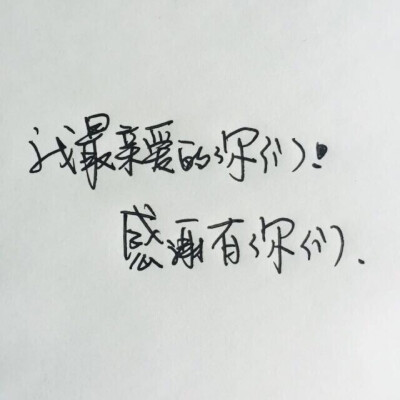 我最亲爱的你们!
感谢有你们.